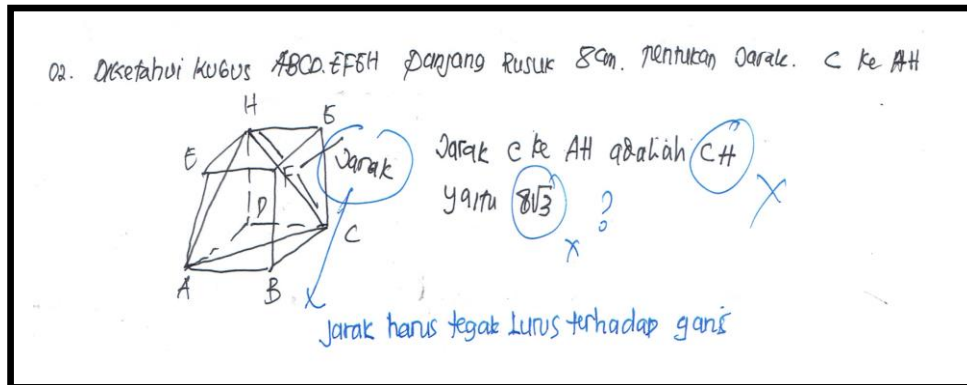 02. Diketahui Kubus ABCD.EFGH Panjang Rusuk 8cm. Tentukan Jarak. C ke AH
H
G
E
F
Jarak
D
C
A
B
Jarak C ke AH adalah CH
yaitu 8√3 ?
X
X
X
Jarak harus tegak Lurus terhadap garis